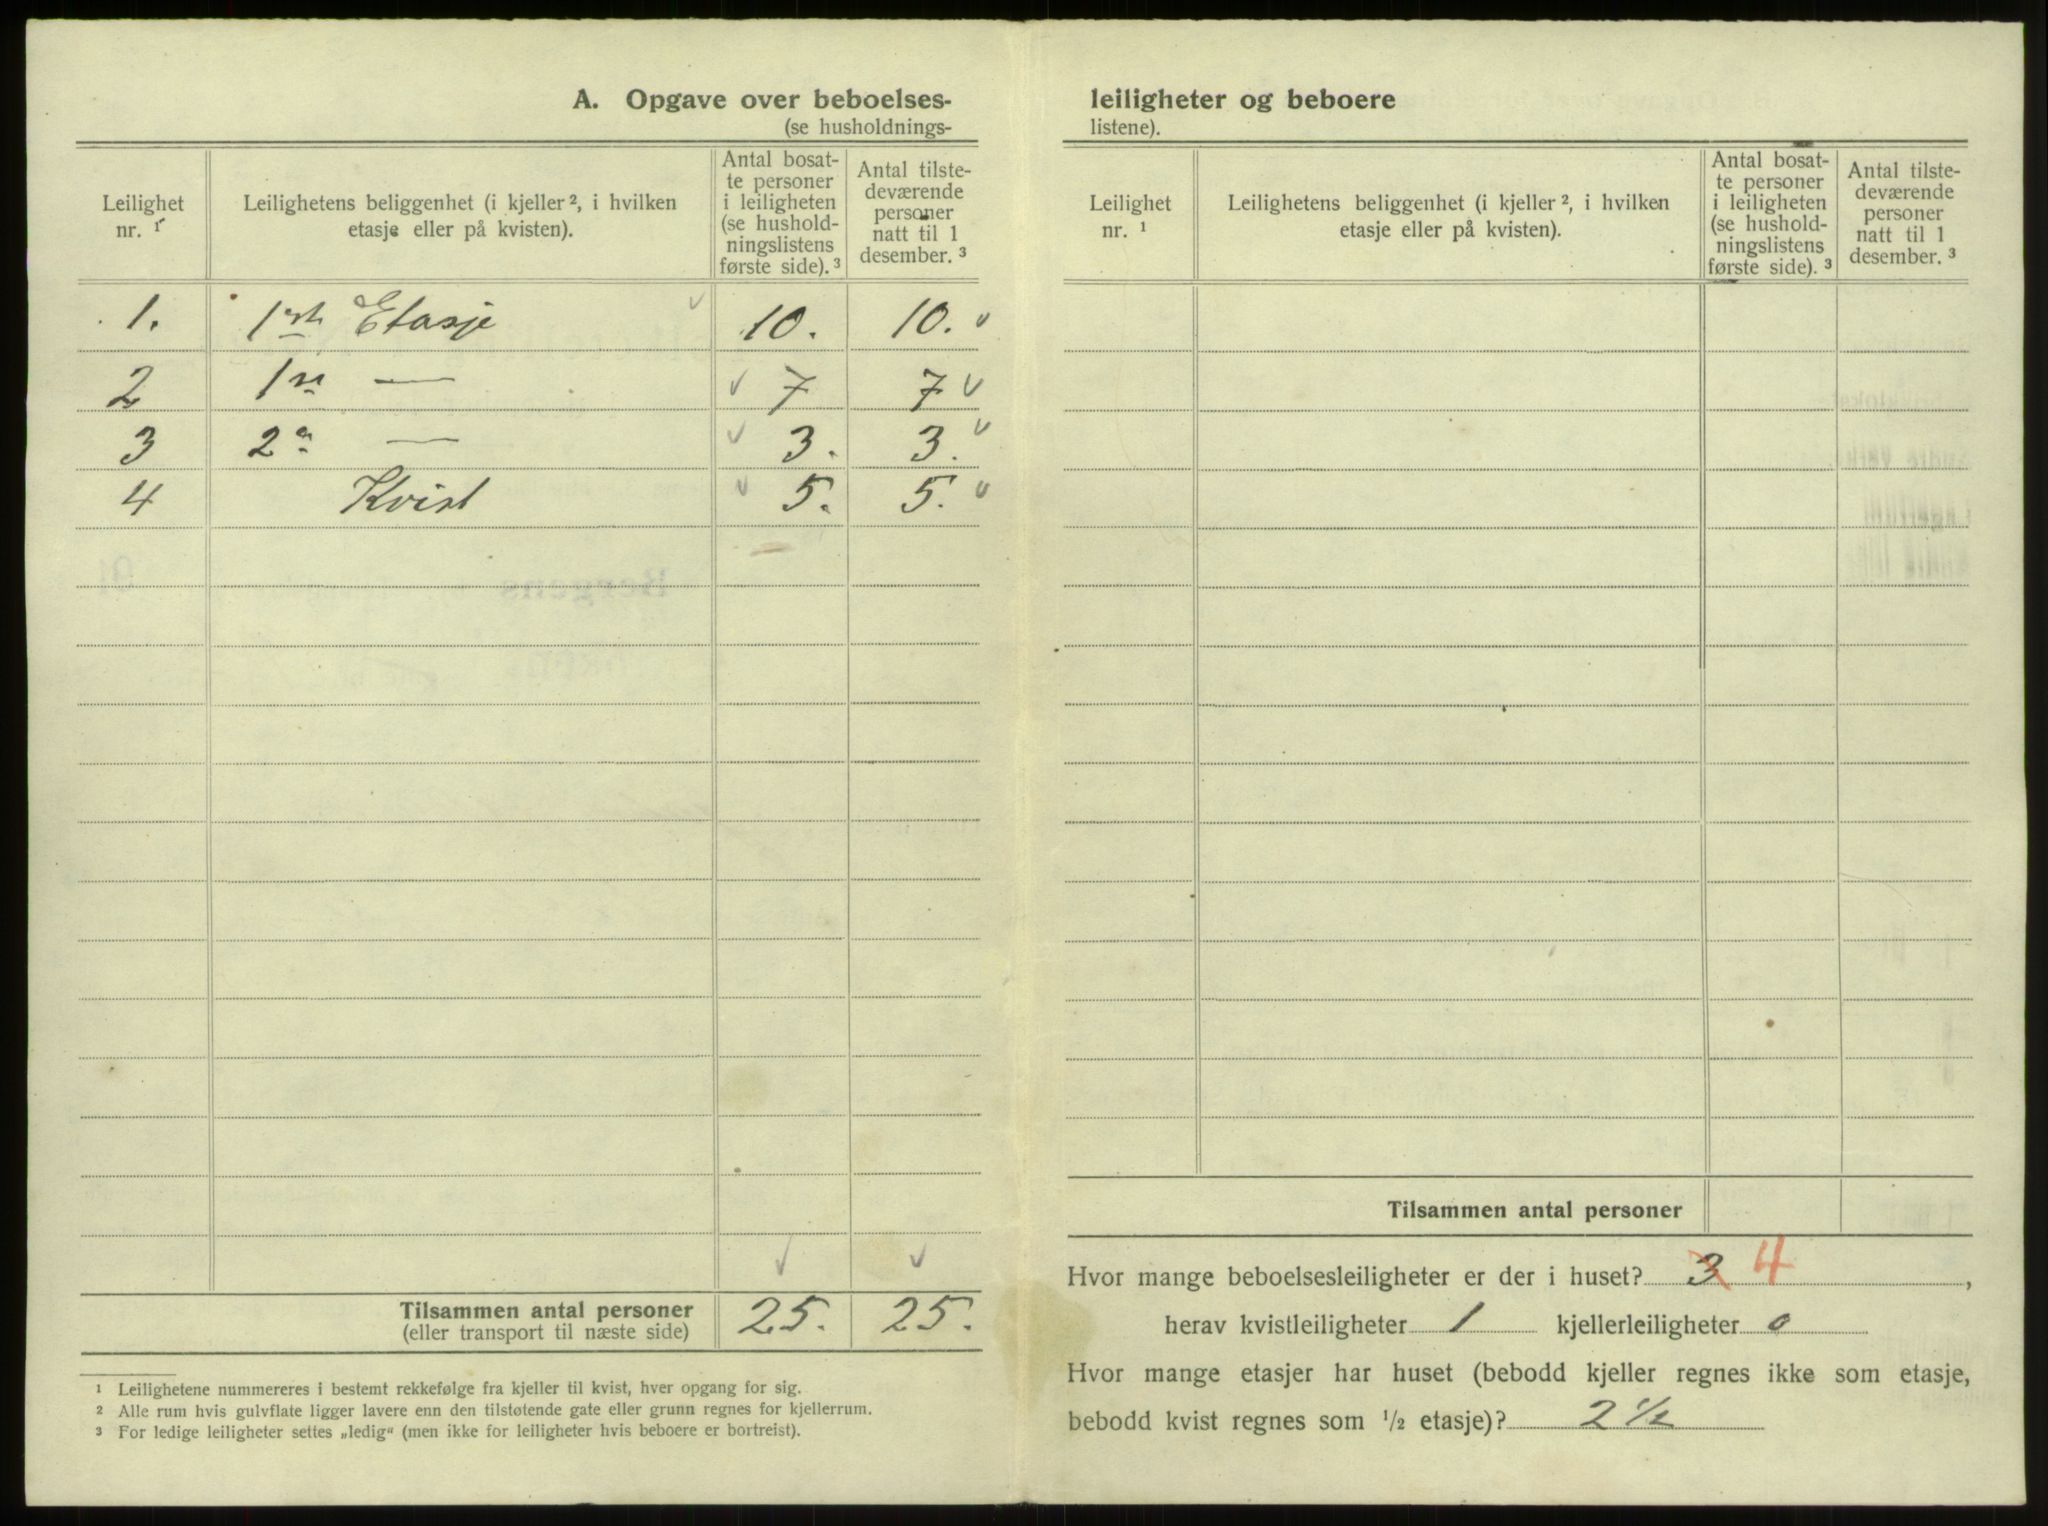 A. Opgave over beboelses-
(se husholdnings-
Leilighet nr. 1
Leilighetens beliggenhet (i kjeller 2, i hvilken etasje eller på kvisten).
Antal bosat-
te personer
i leiligheten
(se hushold-
ningslistens
første side). 3
Antal tilste-
deværende
personer
natt til 1
desember. 3
1. 1ste Etasje 10. 10.
2 1ste — 7 7
3 2n — 3. 3.
4 Kvist 5. 5.
Tilsammen antal personer 25. 25.
(eller transport til næste side)
1 Leilighetene nummereres i bestemt rekkefølge fra kjeller til kvist, hver opgang for sig.
2 Alle rum hvis gulvflate ligger lavere enn den tilstøtende gate eller grunn regnes for kjellerrum.
3 For ledige leiligheter settes „ledig“ (men ikke for leiligheter hvis beboere er bortreist).
leiligheter og beboere
listene).
Leilighet nr. 1
Leilighetens beliggenhet (i kjeller 2, i hvilken etasje eller på kvisten).
Antal bosat-
te personer
i leiligheten
(se hushold-
ningslistens
første side). 3
Antal tilste-
deværende
personer
natt til 1
desember. 3
Tilsammen antal personer
Hvor mange beboelsesleiligheter er der i huset? 3 4,
herav kvistleiligheter 1 kjellerleiligheter 0
Hvor mange etasjer har huset (bebodd kjeller regnes ikke som etasje,
bebodd kvist regnes som 1/2 etasje)? 2 1/2